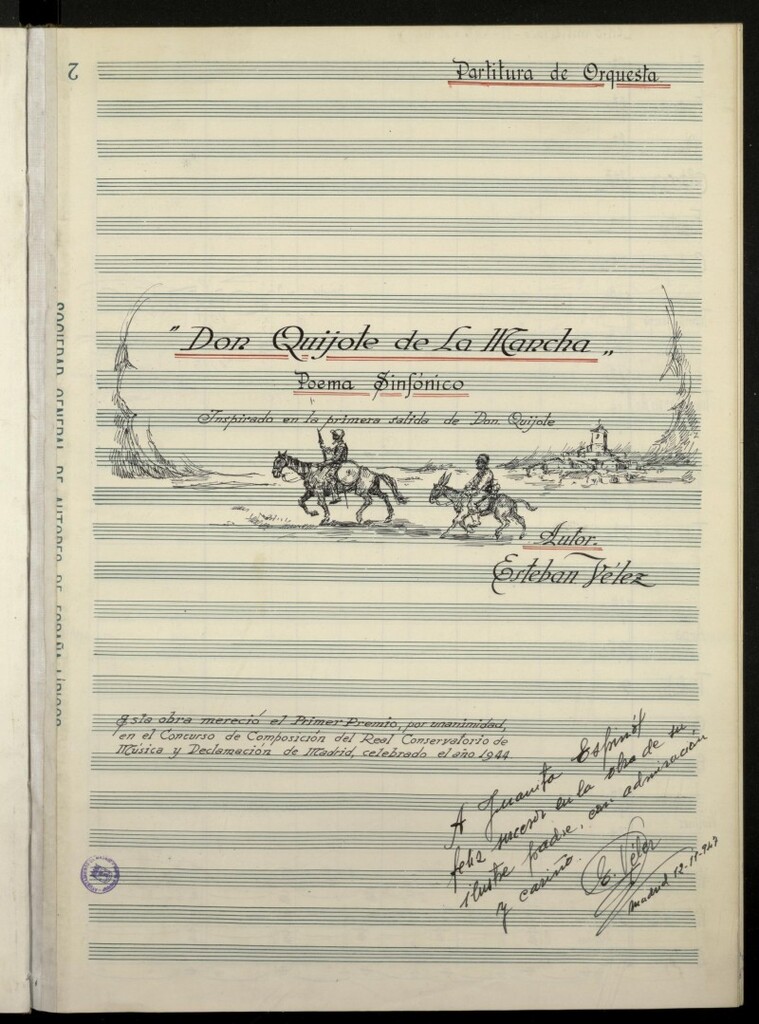 2
Partitura de Orquesta
"Don Quijote de La Mancha„
Poema Sinfónico
Inspirado en la primera salida de Don Quijote
Autor.
Esteban Vélez
Esta obra mereció el Primer Premio, por unanimidad,
en el Concurso de Composición del Real Conservatorio de
Música y Declamación de Madrid, celebrado el año 1944
A Juanita Espinós
feliz sucesor en la obra de su
ilustre padre, con admiración
y cariño.
E. Vélez
Madrid 12-11-947
SOCIEDAD GENERAL DE AUTORES DE ESPAÑA